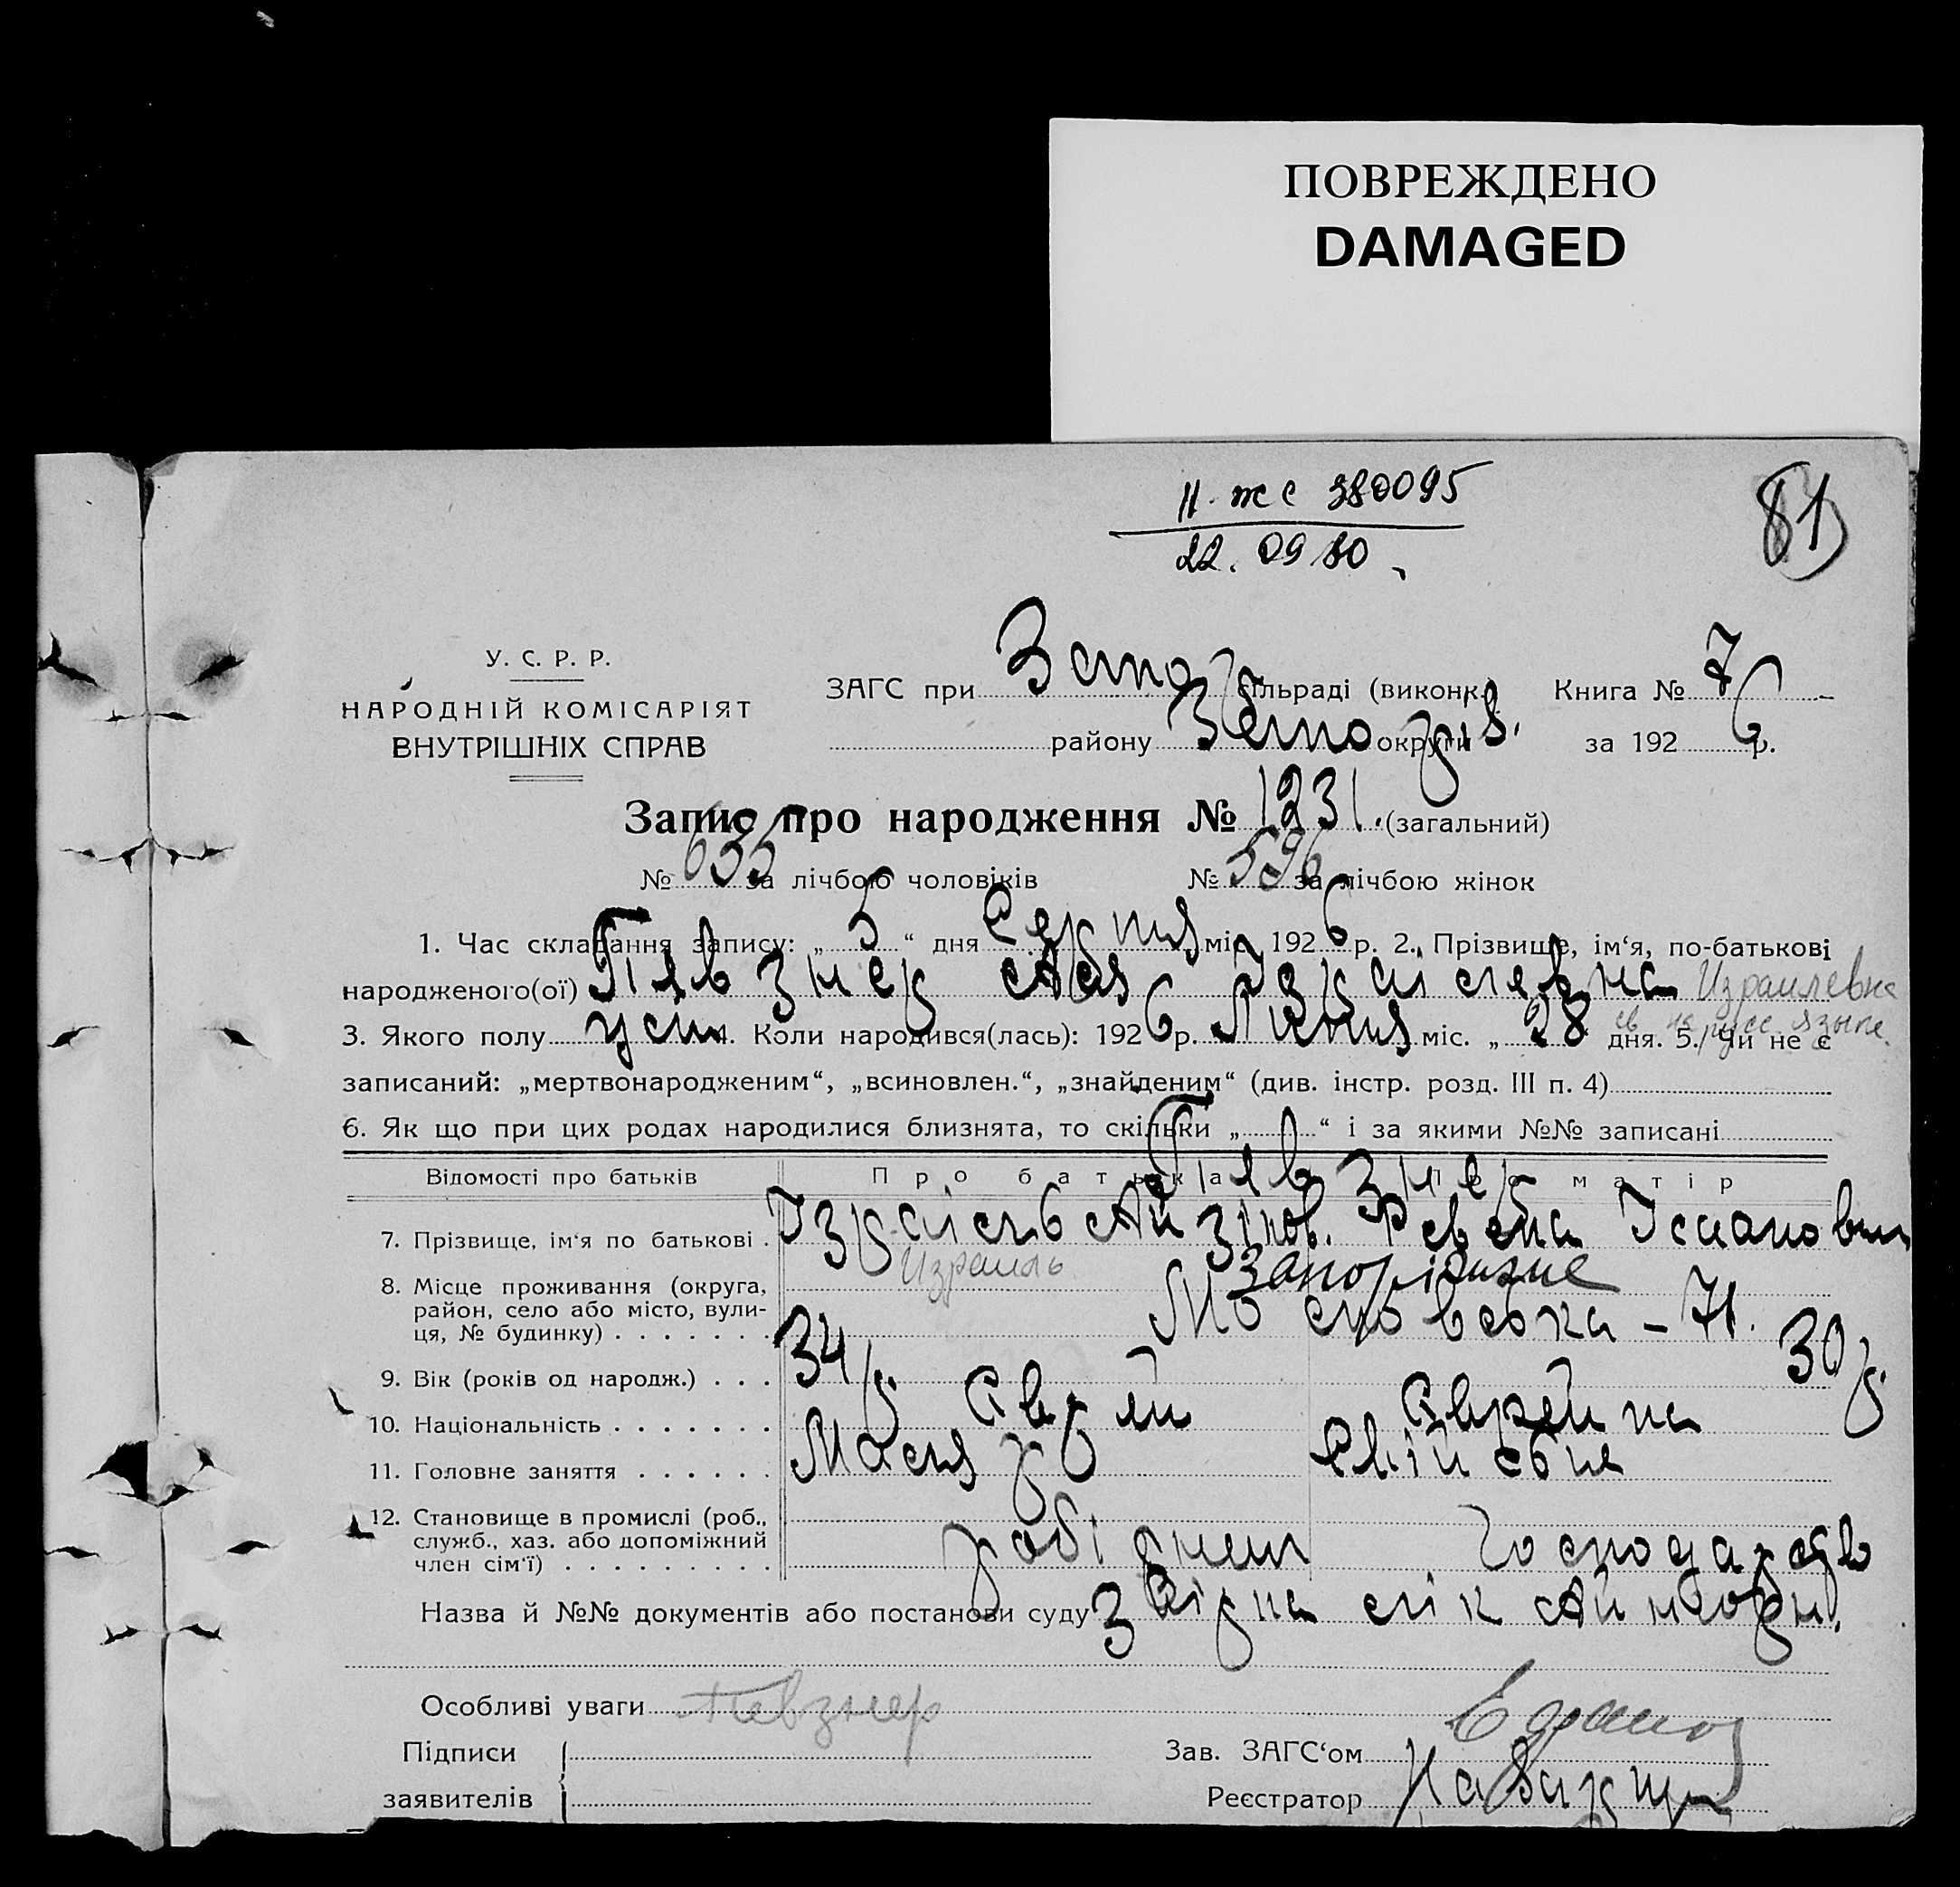 ПОВРЕЖДЕНО
DAMAGED
II-жс 380095
22.09.80
81
У. С. Р. Р.
НАРОДНІЙ КОМІСАРІЯТ
ВНУТРІШНІХ СПРАВ
ЗАГС при Запо сільраді (виконк.) Книга № 7
району Запоріз. округи за 1926 р.
Запис про народження № 1231. (загальний)
№ 635 за лічбою чоловіків № 596 за лічбою жінок
1. Час складання запису: „ 5 “ дня Серпня міс. 1926 р. 2. Прізвище, ім‘я, по-батькові
народженого(ої) Певзнер Ізраілевна Израилевна
на русс. языке
3. Якого полу 4. Коли народився(лась): 1926 р. Липня міс. „ 28 дня. 5. Чи не є
записаний: „мертвонародженим“, „всиновлен.“, „знайденим“ (див. інстр. розд. III п. 4)
6. Як що при цих родах народилися близнята, то скільки „ “ і за якими №№ записані
Відомості про батьків Про батька Про матір
Певзнер
7. Прізвище, ім‘я по батькові . Ізраіль Айзіков. Ревека Ісааковна
Израиль
8. Місце проживання (округа, Запоріжжє
район, село або місто, вули-
ця, № будинку) . . . . . . . Московська – 71.
9. Вік (років од народж.) . . . 34 р. 30 р.
10. Національність . . . . . . . Єврей Єврейка
11. Головне заняття . . . . . . Маляр Хатнє
12. Становище в промислі (роб.,
служб., хаз. або допоміжний
член сім‘ї) . . . . . . . . . робітник господарство
Назва й №№ документів або постанови суду
Особливі уваги Певзнер
Підписи Зав. ЗАГС‘ом
заявителів Реєстратор